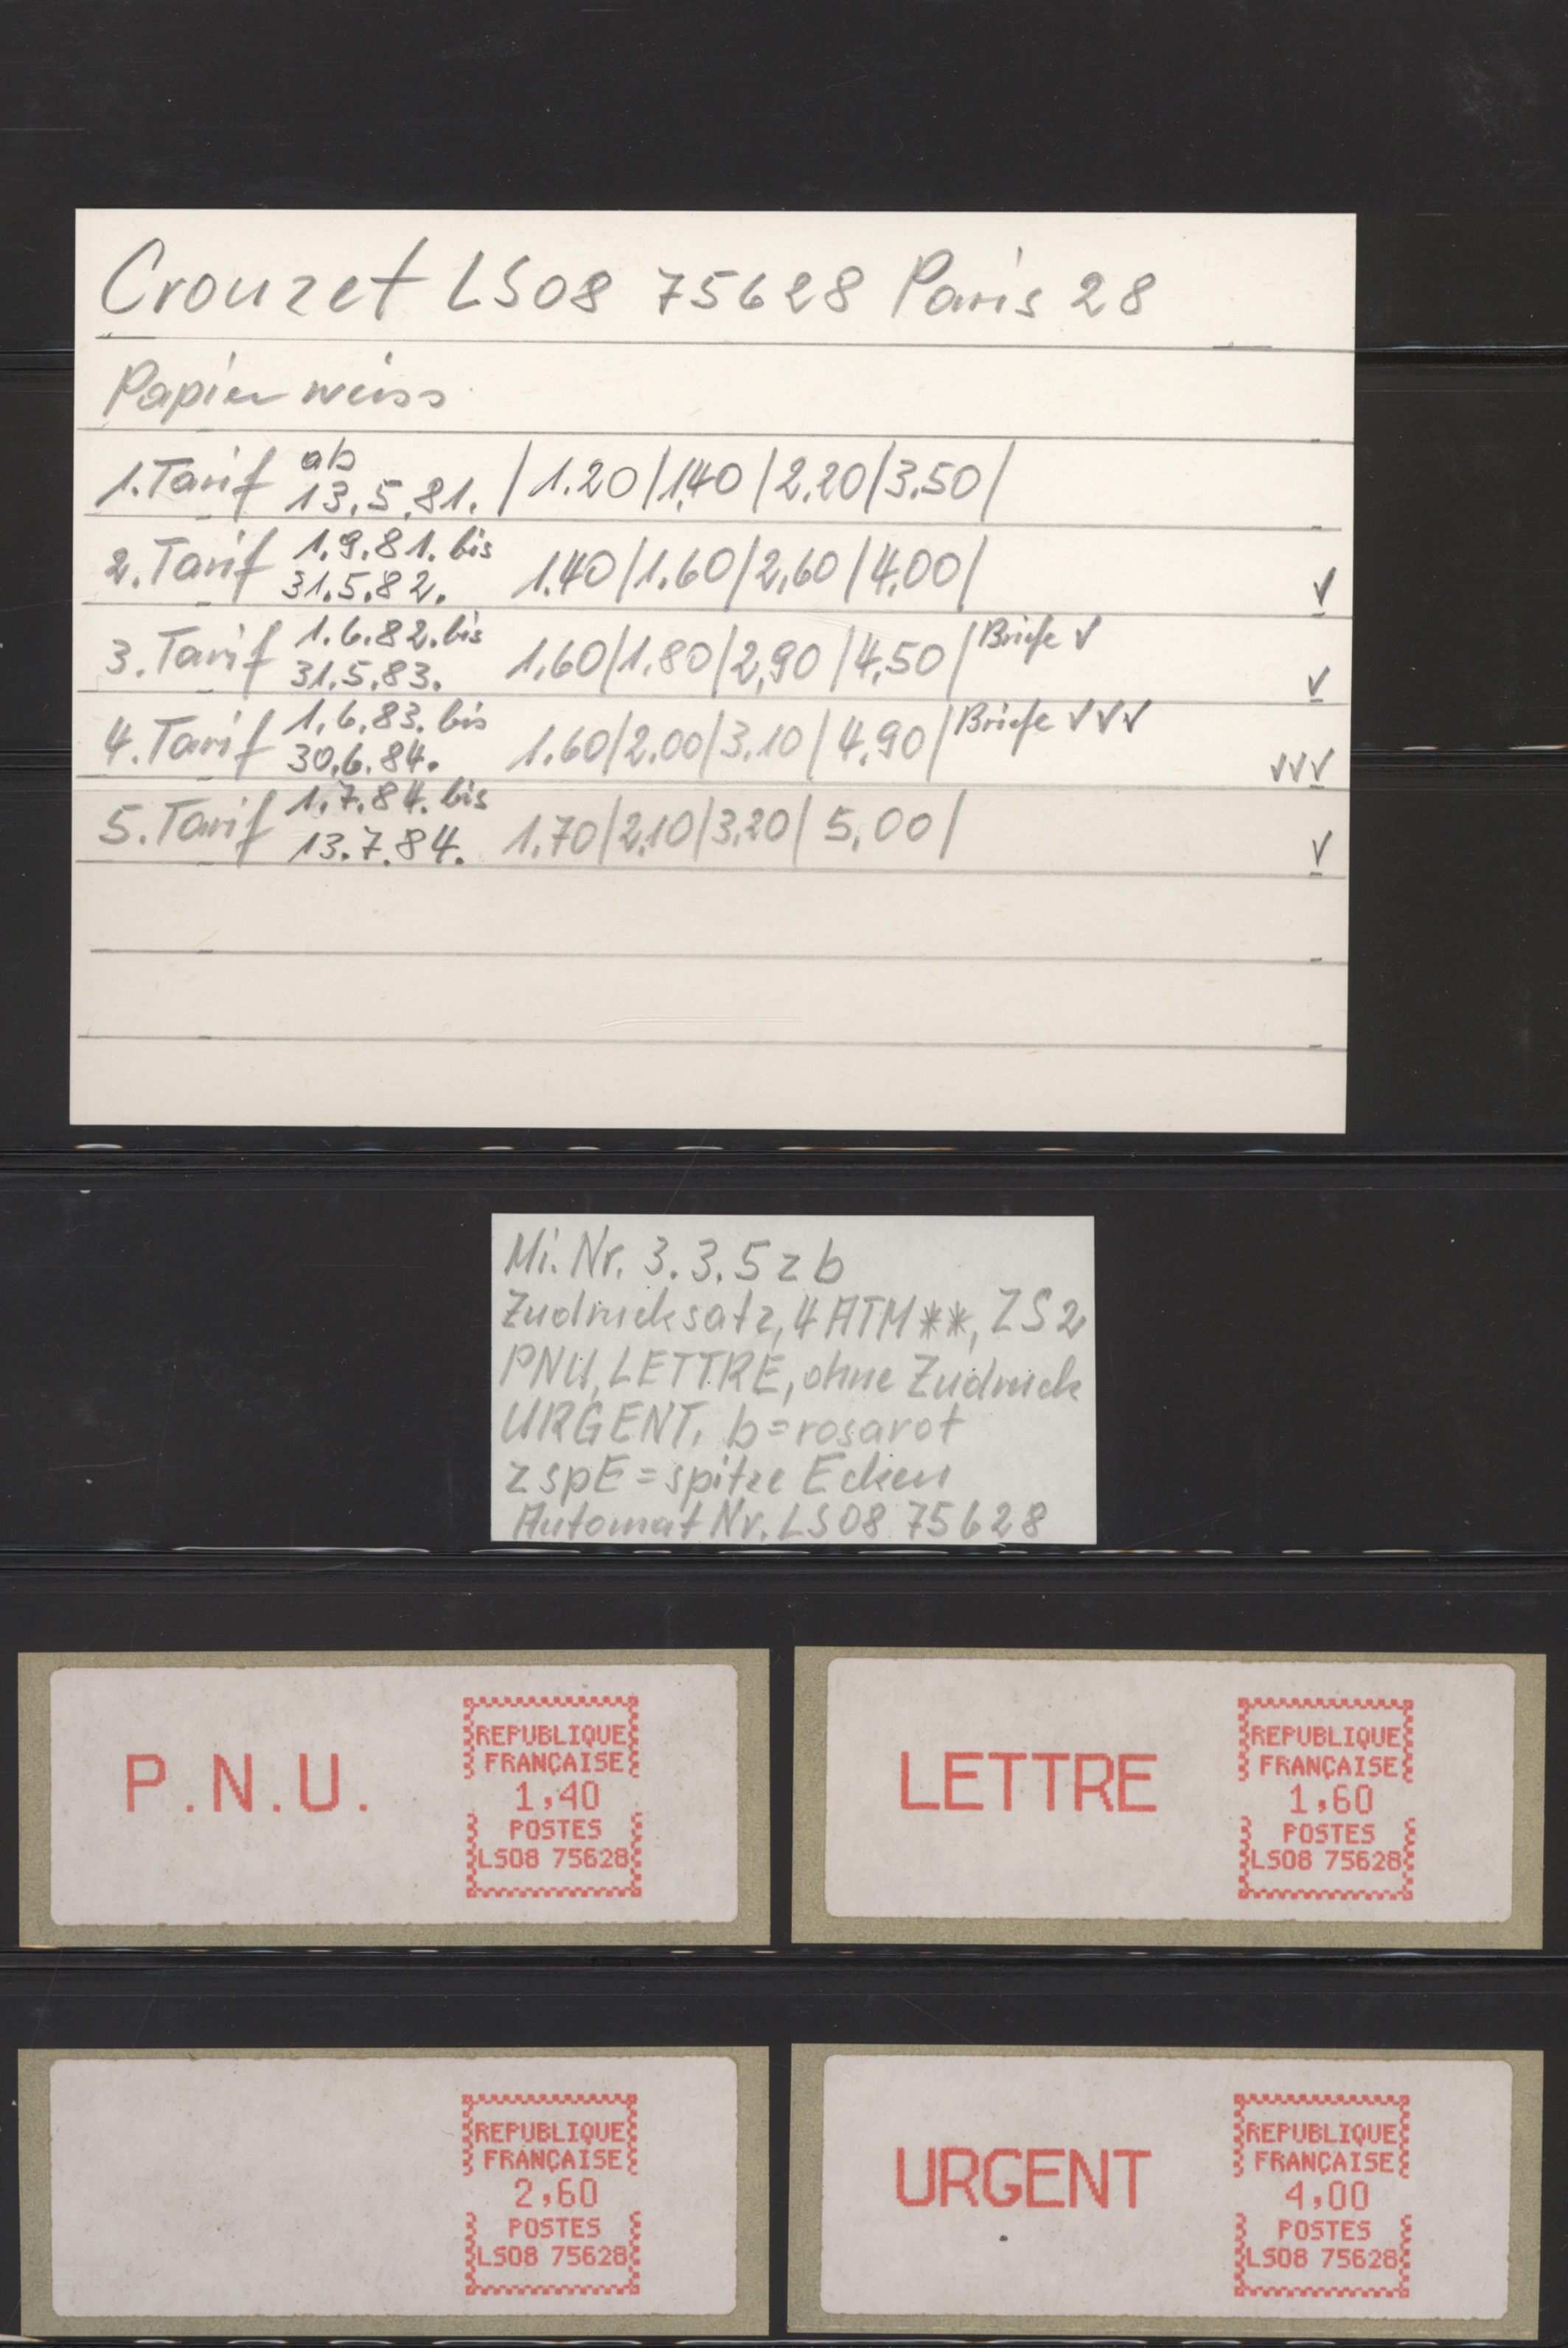 Crouzet LS08 75628 Paris 28
Papier weiss
1. Tarif ab 13.5.81. | 1.20 | 1,40 | 2,20 | 3,50 |
2. Tarif 1.9.81. bis 31.5.82. 1,40 | 1.60 | 2,60 | 4,00 | ✓
3. Tarif 1.6.82. bis 31.5.83. 1,60 | 1.80 | 2,90 | 4,50 | Briefe ✓ ✓
4. Tarif 1.6.83. bis 30.6.84. 1.60 | 2.00 | 3.10 | 4,90 | Briefe ✓✓✓ ✓✓✓
5. Tarif 1.7.84. bis 13.7.84. 1,70 | 2,10 | 3,20 | 5,00 | ✓
Mi. Nr. 3.3.5 z b
Zudrucksatz, 4 ATM **, ZS 2
PNU, LETTRE, ohne Zudruck
URGENT. b = rosarot
z spE = spitze Ecken
Automat Nr. LS08 75628
P.N.U.
REPUBLIQUE
FRANÇAISE
1,40
POSTES
LS08 75628
LETTRE
REPUBLIQUE
FRANÇAISE
1,60
POSTES
LS08 75628
REPUBLIQUE
FRANÇAISE
2,60
POSTES
LS08 75628
URGENT
REPUBLIQUE
FRANÇAISE
4,00
POSTES
LS08 75628